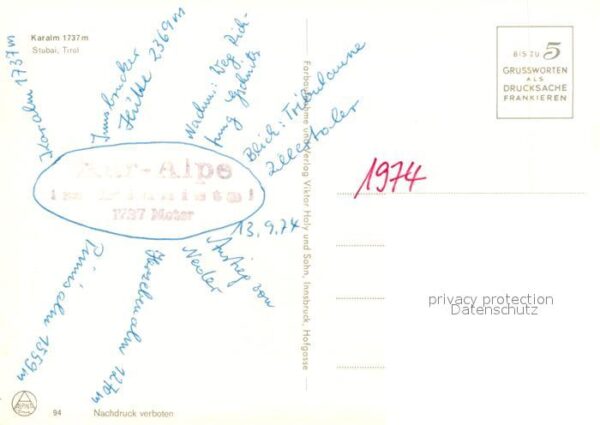 Karalm 1737 m
Stubai, Tirol
Karalm 1737m
Innsbrucker
Hütte 2369m
Nachm: Weg Rich-
tung Gschnitz
Blick: Tribulaune
Zillertaler
Kar-Alpe
im Pinnistal
1737 Meter
13.9.74
Pinnisalm 1559m
Herzebnalm 1270m
Anstieg von
Neder
Farbaufnahme und Verlag Viktor Holy und Sohn, Innsbruck, Hofgasse
BIS ZU 5
GRUSSWORTEN
ALS
DRUCKSACHE
FRANKIEREN
1974
privacy protection
Datenschutz
94
Nachdruck verboten